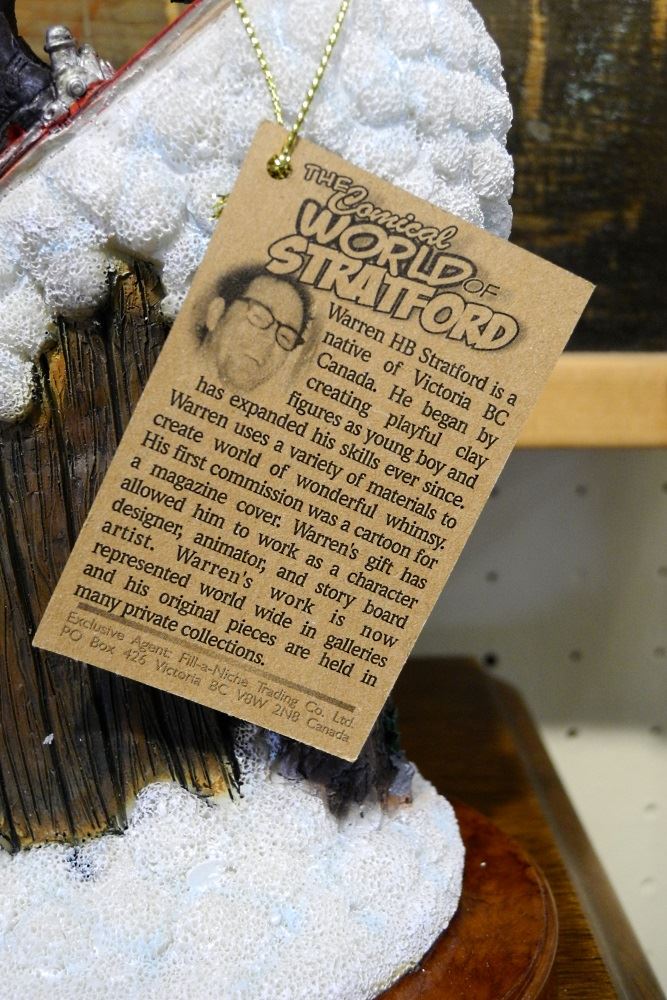 THE
Comical
WORLD OF
STRATFORD
Warren HB Stratford is a
native of Victoria BC
Canada. He began by
creating playful clay
figures as young boy and
has expanded his skills ever since.
Warren uses a variety of materials to
create world of wonderful whimsy.
His first commission was a cartoon for
a magazine cover. Warren's gift has
allowed him to work as a character
designer, animator, and story board
artist. Warren's work is now
represented world wide in galleries
and his original pieces are held in
many private collections.
Exclusive Agent: Fill-a-Niche Trading Co. Ltd.
PO Box 426 Victoria BC V8W 2N8 Canada